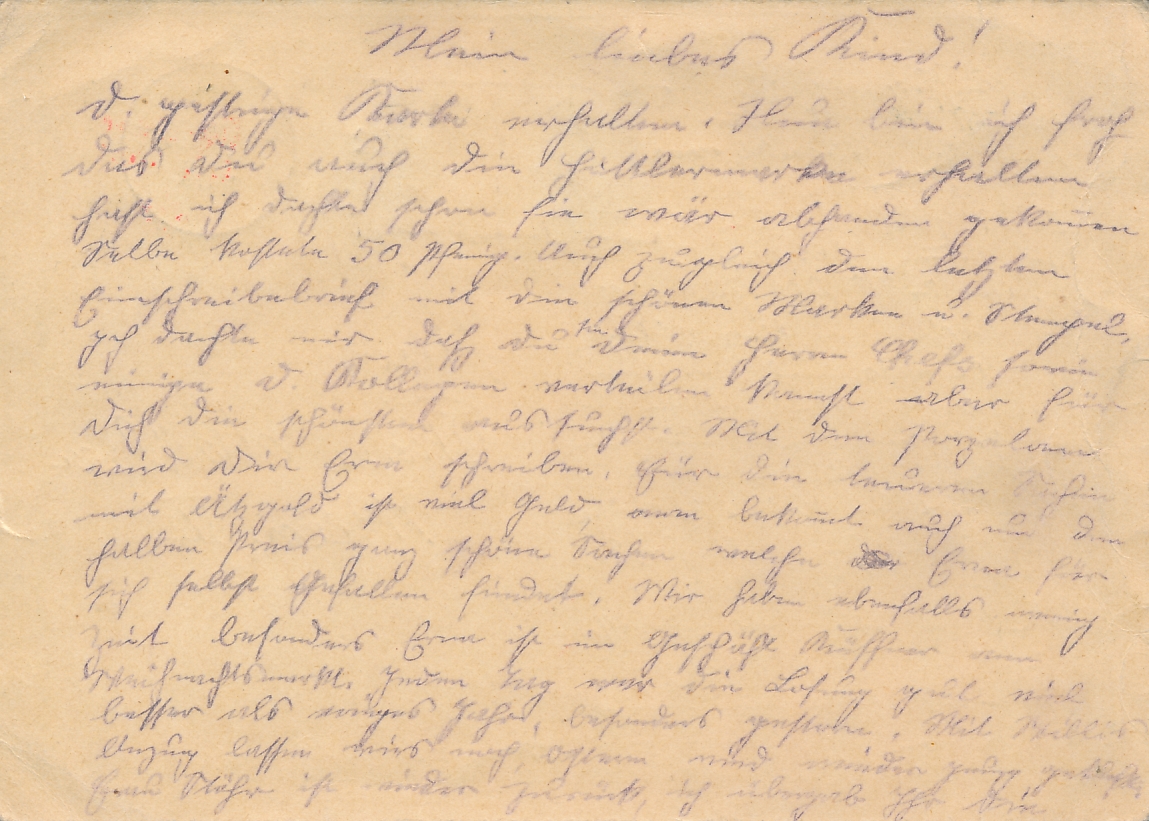 Mein liebes Kind!
D. gestrige Karte erhalten. Nun bin ich froh
das Du auch die Hittlermarke erhalten
hast ich dachte schon sie wär abhanden gekommen
Selbe kostete 50 Pfenig. Auch zugleich den letzten
Einschreibebrief mit die schönen Marken u. Stempel,
ich dachte mir daß Du Deine Herrn Chefs sowie
einige d. Kollegen verteilen kannst aber für
Dich die schönsten aussuchst. Mit dem Porzelan
wird Dir Erna schreiben. Für die teueren Sachen
mit Ätzgold ist viel Geld man bekomt auch um den
halben Preis ganz schöne Sachen welche Erna für
sich selbst Gefallen findet. Wir haben ebenfalls wenig
Zeit besonders Erna ist im Geschäft am
Weihnachtsmarkt. Jeden Tag war die Losung gut viel
besser als voriges Jahr, besonders gestern. Mit
Anzug lassen wirs noch, Ostern wird wieder
Frau Stöhr ist wieder zurück, ich übergab Ihr die